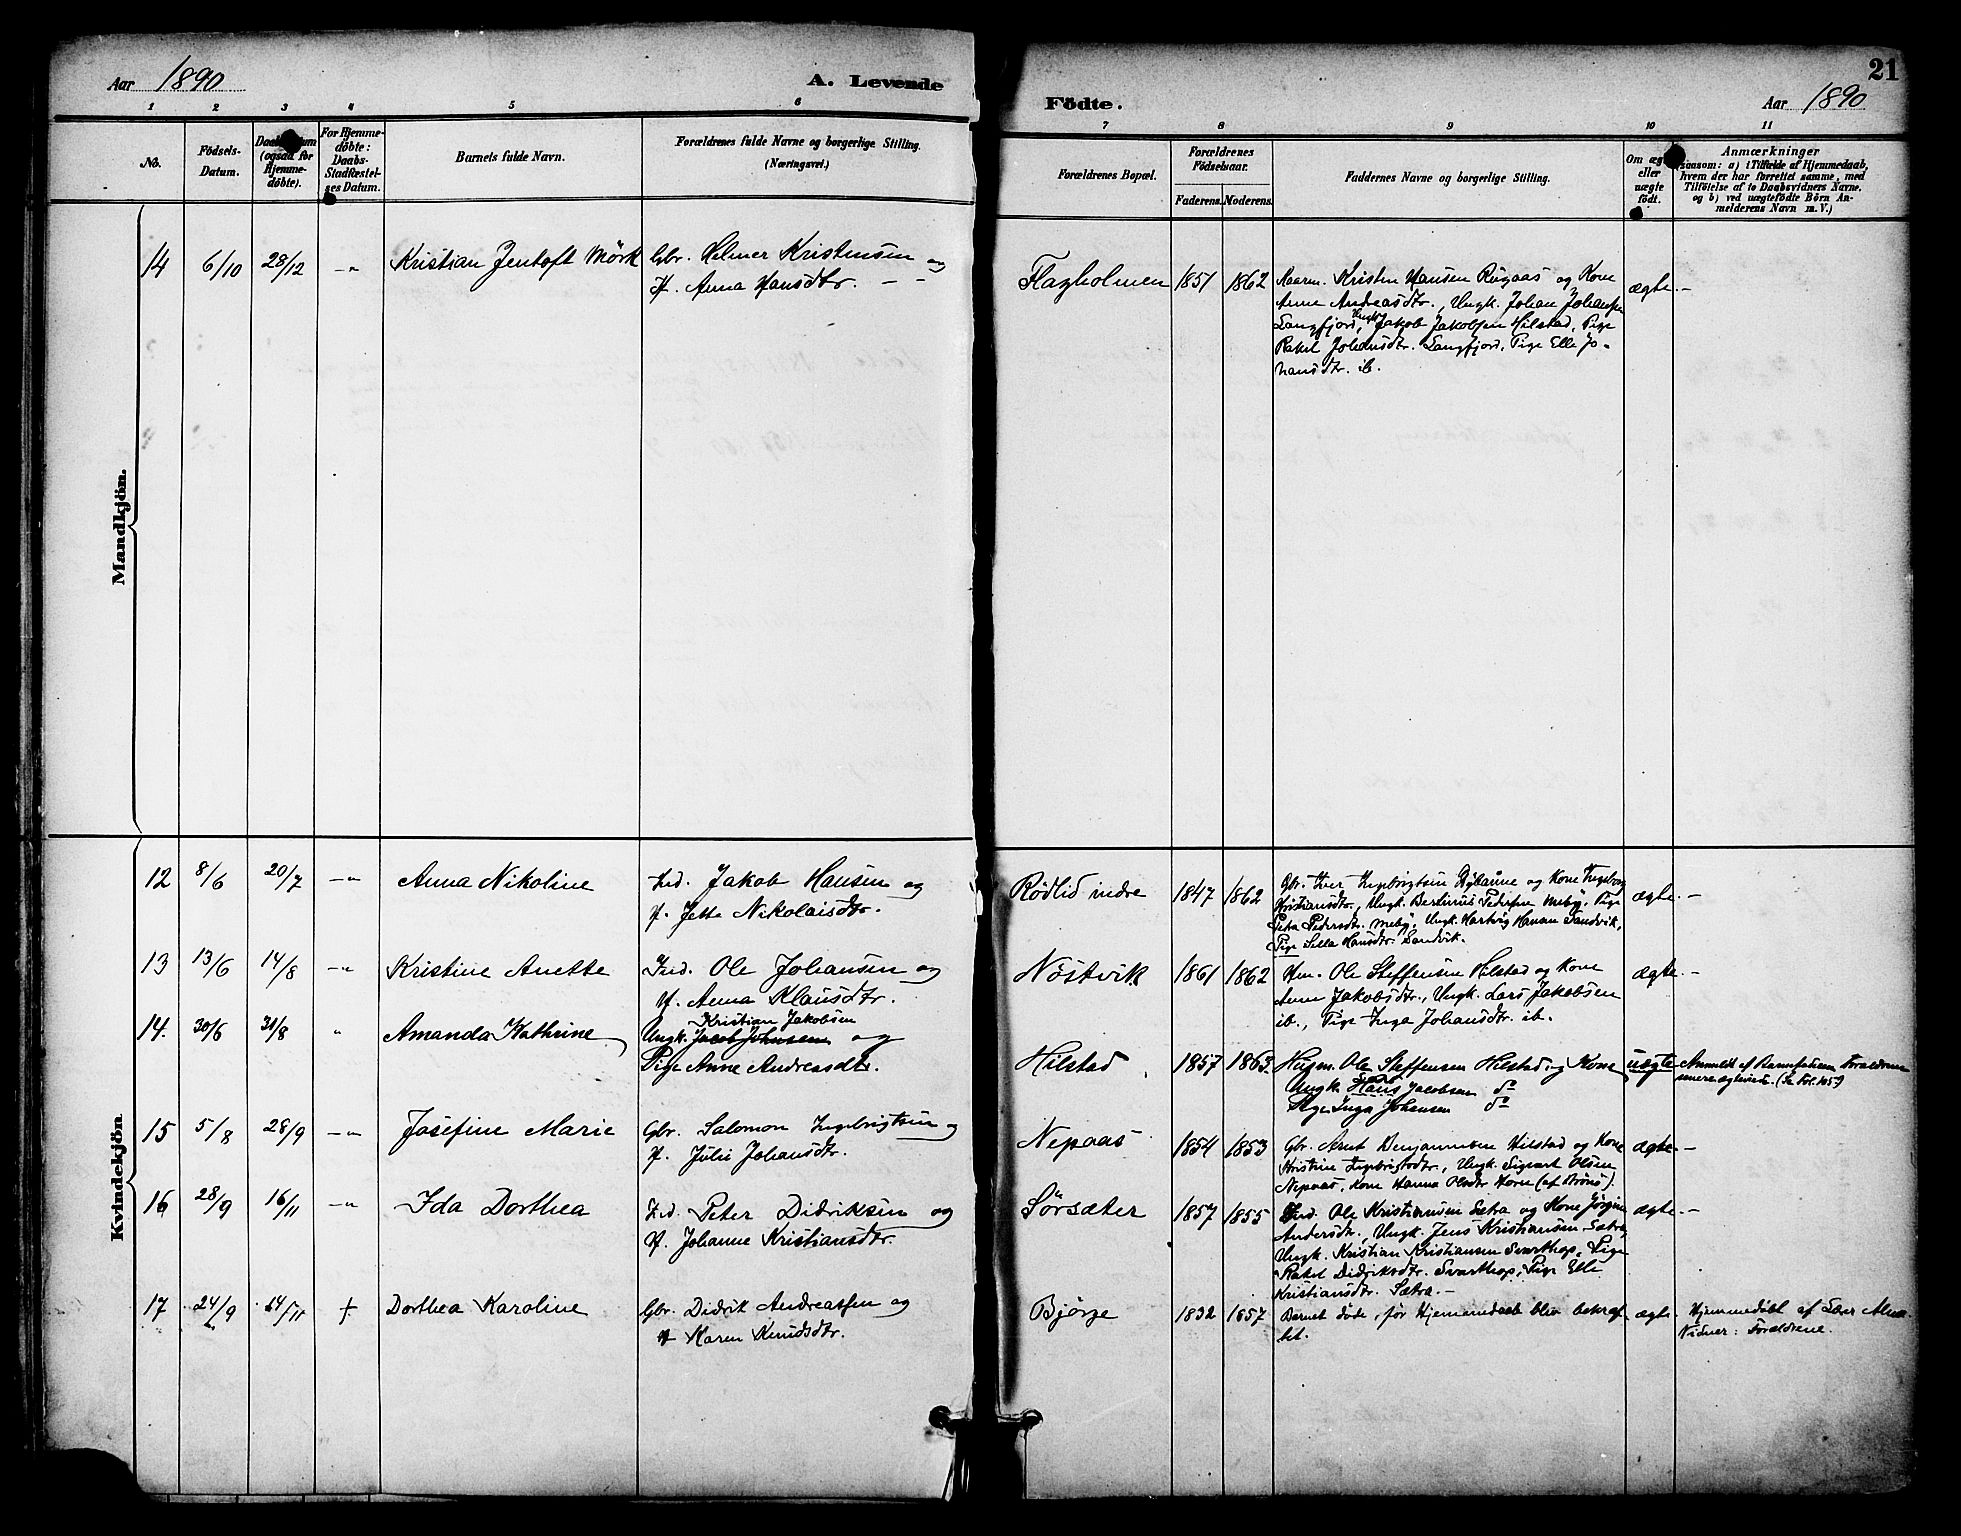 Aar 1890
A. Levende
Födte.
Aar 1890
21
1 2 3 4 5 6
7 8 9 10 11
No.
Födsels-
Datum.
(ogsaa for
Hjemme-
döbte).
For Hjemme-
döbte:
Daabs-
Stadfæstel-
ses Datum.
Barnets fulde Navn.
Forældrenes fulde Navne og borgerlige Stilling.
(Næringsvei.)
Forældrenes Bopæl.
Forældrenes
Födselsaar.
Faderens. Moderens.
Faddernes Navne og borgerlige Stilling.
Om æg
eller
uægte
födt.
Anmærkninger
saasom: a) i Tilfælde af Hjemmedaab,
hvem der har forrettet samme, med
Tilföielse af to Daabsvidners Navne.
og b) ved uægtefödte Börn An-
melderens Navn m. V.)
Mandkjön.
14 6/10 28/12 -„- Kristian Jentoft Mörk
Gbr. Helmer Kristensen og
H. Anna Hansdtr. - -
Flagholmen 1851 1862
Kristen Hansen Rugaas og Kone
Anna Andreasdtr., Ungk. Johan Johansen
Langfjord, Ungk. Jakob Jakobsen Hilstad, Pige
Rakel Johansdtr. Langfjord, Pige Elle Jo-
hansdtr. ib.
ægte. -
Kvindekjön
12 8/6 20/7 -„- Anna Nikoline
Ind. Jakob Hansen og
H. Jette Nikolaisdtr.
Rödlid indre 1847 1862
Gbr. Iver Ingebrigtsen og Kone Ingeborg
Kristiansdtr., Ungk. Pedersen Meby, Pige
Petra Pedersdtr. Meby, Ungk. Hartvig Hansen Sandvik,
Pige Sella Hansdtr. Sandvik.
ægte. -
13 13/6 14/8 -„- Kristine Anette
Ind. Ole Johansen og
H. Anna Klausdtr.
Nöstvik 1861 1862
Hm. Ole Steffensen Hilstad og Kone
Anne Jakobsdtr., Ungk. Lars Jakobsen
ib., Pige Inga Johansdtr. ib.
ægte. -
14. 30/6 31/8 „ Amanda Kathrine
Kristian Jakobsen
Ungk. Jacob Johnsen og
Pige Anne Andreasdtr.
Hilstad 1857 1863.
Husm. Ole Steffensen Hilstad og Kone
Ungk. Hans Jacobsen do
Pige Inga Johansen do
uægte
Anmeldt af Barnefaderen Forældrene
senere ægteviede. (Se Fol. 105)
15 5/8 28/9 -„- Josefine Marie
Gbr. Salomon Ingebrigtsen og
H. Julie Johansdtr.
Nepaas 1854 1853
Gbr. Arnt Benjaminsen Hilstad og Kone
Kristine Ingebrigtsdtr., Ungk. Sigvart Olsen
Nepaas, Kone Hanna Olsdtr Horn (af Brönö).
ægte. -
16 28/9 16/11 -„- Ida Dorthea
Ind. Peter Didriksen og
H. Johanne Kristiansdtr.
Sörsæter 1857 1855
Ind. Ole Kristiansen Sætra og Kone Jörgine
Andersdtr., Ungk. Jens Kristiansen Sætra,
Ungk. Kristian Kristiansen Svarthop, Pige
Rakel Didriksdtr. Svarthop, Pige Elle
Kristiansdtr. Sætra. -
ægte. -
17 24/9 14/11 † Dorthea Karoline
Gbr. Didrik Andreassen og
H. Karen Knudsdtr.
Björge 1832 1857
Barnet döde, för Hjemmedaab blev bekræf-
tet.
ægte.
Hjemmedöbt af Lær
Vidner: Forældrene.